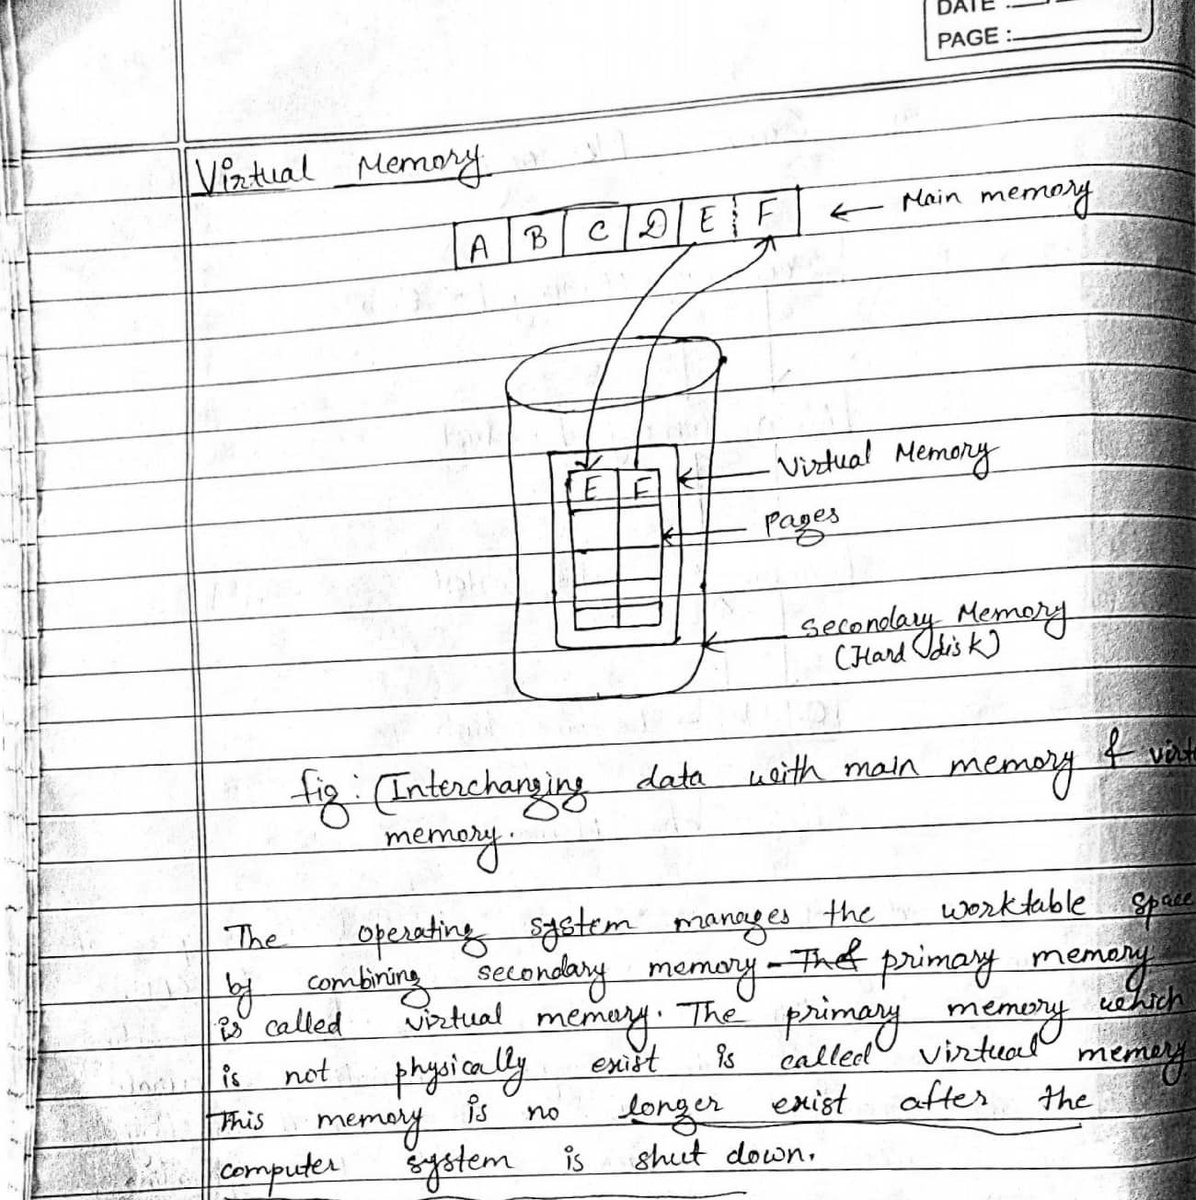 DATE :
PAGE :
Virtual Memory
A B C D E F ← Main memory
Virtual Memory
E F
Pages
Secondary Memory
(Hard disk)
fig : (Interchanging data with main memory &
memory.
The operating system manages the worktable space
by combining secondary memory - The & primary memory
is called virtual memory. The primary memory which
is not physically exist is called virtual memory
This memory is no longer exist after the
computer system is shut down.